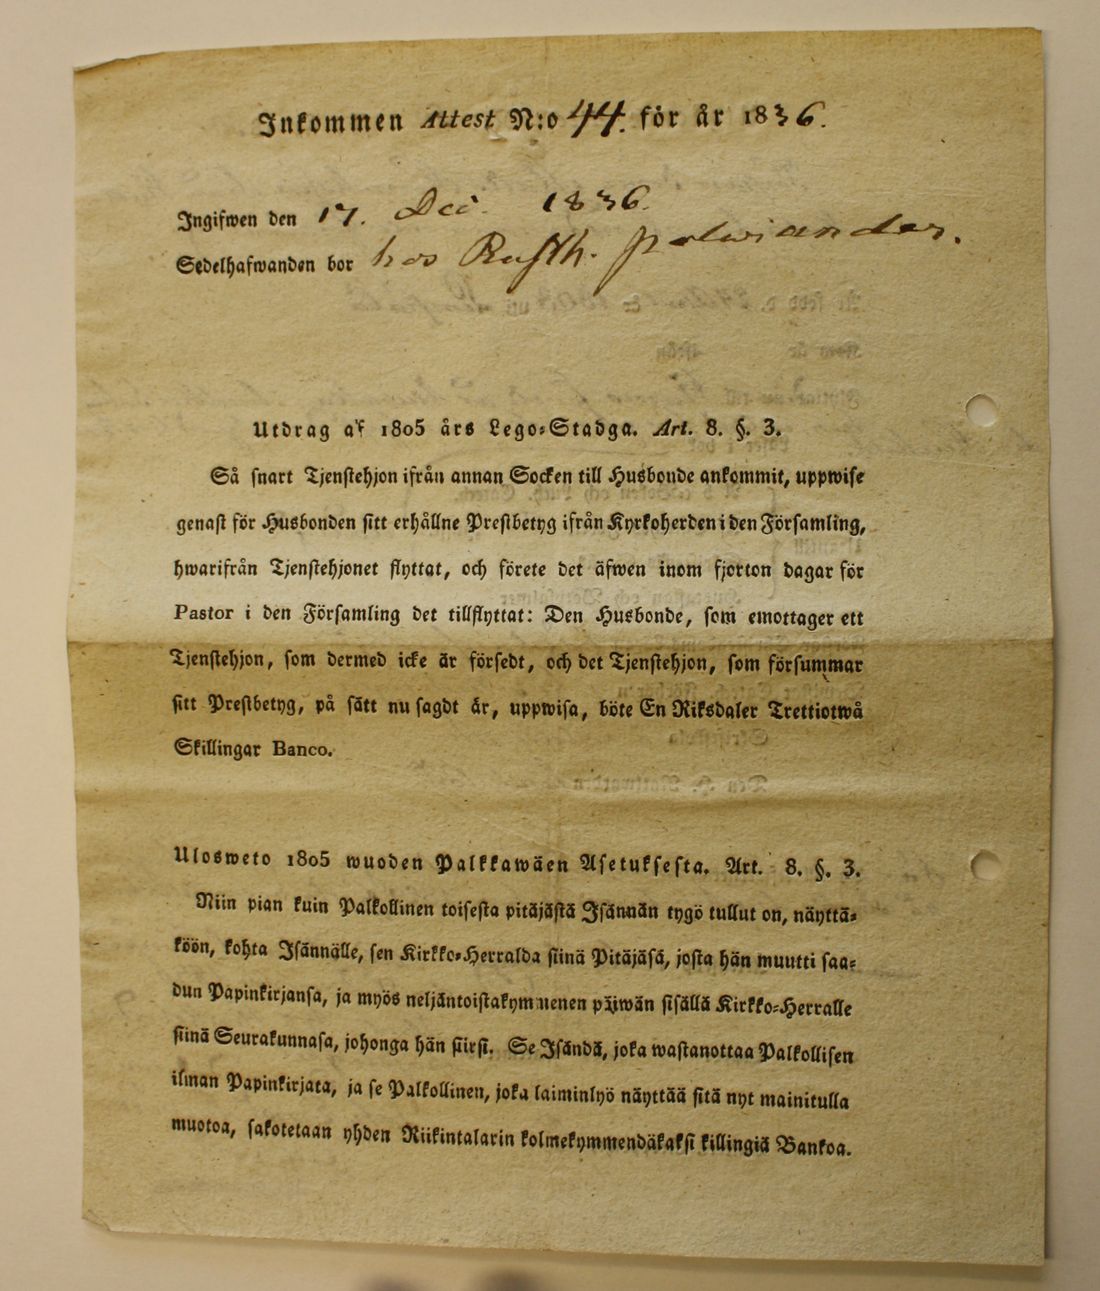 Inkommen Attest N:o 44. för år 1836.
Ingifwen den 17. Dec. 1836.
Sedelhafwanden bor hos Rusth.
Utdrag af 1805 års Lego-Stadga. Art. 8. §. 3.
Så snart Tjenstehjon ifrån annan Socken till Husbonde ankommit, uppwise
genast för Husbonden sitt erhållne Prestbetyg ifrån Kyrkoherden i den Församling,
hwarifrån Tjenstehjonet flyttat, och förete det äfwen inom fjorton dagar för
Pastor i den Församling det tillflyttat: Den Husbonde, som emottager ett
Tjenstehjon, som dermed icke är försedt, och det Tjenstehjon, som försummar
sitt Prestbetyg, på sätt nu sagdt är, uppwisa, böte En Riksdaler Trettiotwå
Skillingar Banco.
Ulosweto 1805 wuoden Palkkawäen Asetuksesta. Art. 8. §. 3.
Niin pian kuin Palkollinen toisesta pitäjästä Isännän tygö tullut on, näyttä-
köön, kohta Isännälle, sen Kirkko-Herralda siinä Pitäjäsä, josta hän muutti saa-
dun Papinkirjansa, ja myös neljäntoistakymmenen päiwän sisällä Kirkko-Herralle
siinä Seurakunnasa, johonga hän siirsi. Se Isändä, joka wastanottaa Palkollisen
ilman Papinkirjata, ja se Palkollinen, joka laiminlyö näyttää sitä nyt mainitulla
muotoa, sakotetaan yhden Riikintalarin kolmekymmendäkaksi killingiä Bankoa.